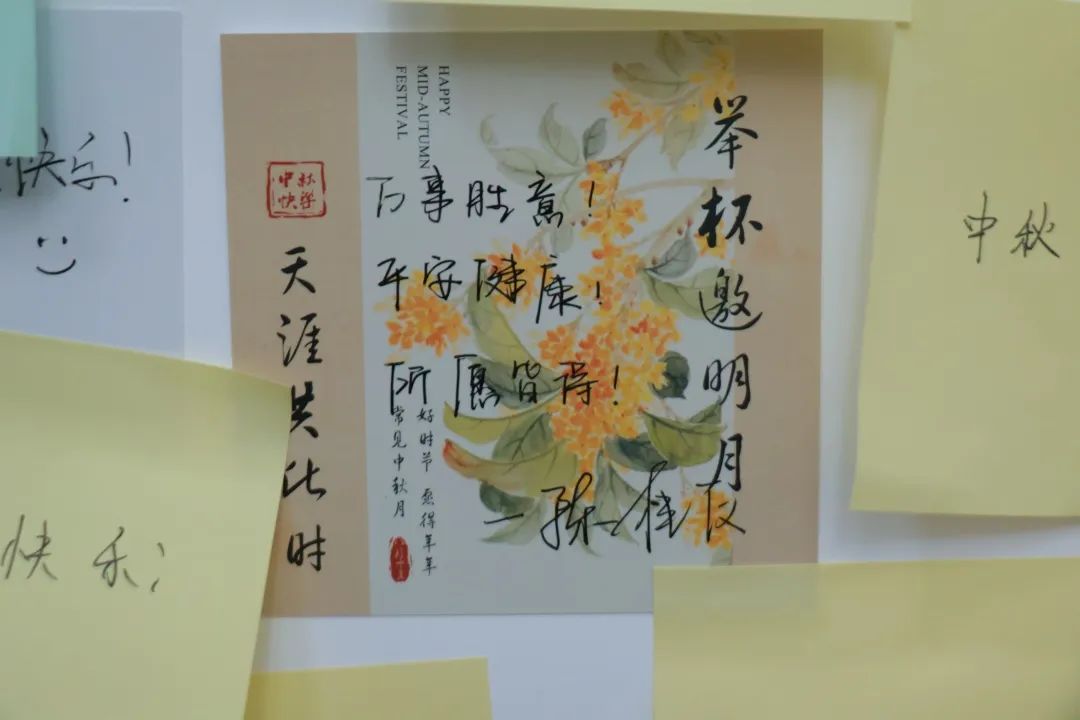 快乐!
:)
HAPPY
MID-AUTUMN
FESTIVAL
举杯邀明月
中秋
快乐
万事胜意!
平安健康!
所愿皆得!
天涯共此时
好时节 愿得年年
常见中秋月
中秋
快乐